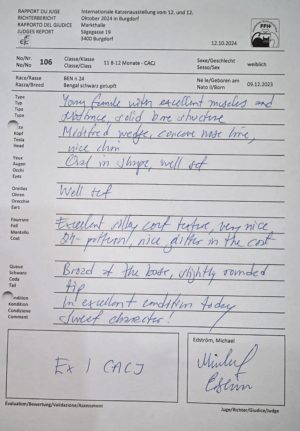 RAPPORT DU JUGE
RICHTERBERICHT
RAPPORTO DEL GIUDICE
JUDGES REPORT
Internationale Katzenausstellung vom 12. und 12.
Oktober 2024 in Burgdorf
Markthalle
Sägegasse 19
3400 Burgdorf
FFH
12.10.2024
No/Nr. 106
No/No
Classe/Klasse 11 8-12 Monate - CACJ
Classe/Class
Sexe/Geschlecht weiblich
Sesso/Sex
Race/Rasse BEN n 24
Razza/Breed Bengal schwarz getupft
Né le/Geboren am 09.12.2023
Nato il/Born
Type
Typ
Tipo
Type
Young female with excellent muscles and
substance, solid bone structure
Tête
Kopf
Testa
Head
Modified wedge, concave nose line,
nice chin
Yeux
Augen
Occhi
Eyes
Oval in shape, well set
Oreilles
Ohren
Orecchie
Ears
Well set
Fourrure
Fell
Mantello
Coat
Excellent silky coat texture, very nice
24- pattern, nice glitter in the coat
Queue
Schwanz
Coda
Tail
Broad at the base, slightly rounded
tip
Condition
Kondition
Condizione
Condition
In excellent condition today
Comment
Sweet character!
Ex 1 CACJ
Edström, Michael
Evaluation/Bewertung/Valutazione/Assessment
Juge/Richter/Giudice/Judge